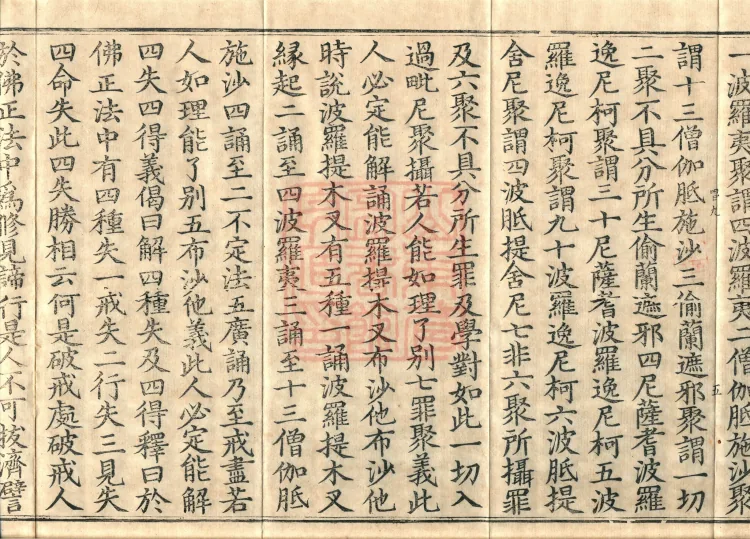 一波羅夷聚謂四波羅夷二僧伽胝施沙聚
謂十三僧伽胝施沙三偷蘭遮邪聚謂一切
二聚不具分所生偷蘭遮邪四尼薩耆波羅
逸尼柯聚謂三十尼薩耆波羅逸尼柯五波
羅逸尼柯聚謂九十波羅逸尼柯六波胝提
舍尼聚謂四波胝提舍尼七非六聚所攝罪
及六聚不具分所生罪及學對如此一切入
過毗尼聚攝若人能如理了別七罪聚義此
人必定能解誦波羅提木叉布沙他布沙他
時說波羅提木叉有五種一誦波羅提木叉
緣起二誦至四波羅夷三誦至十三僧伽胝
施沙四誦至二不定法五廣誦乃至戒盡若
人如理能了別五布沙他義此人必定能解
四失四得義偈曰解四種失及四得釋曰於
佛正法中有四種失一戒失二行失三見失
四命失此四失勝相云何是破戒處破戒人
於佛正法中爲修見諦行是人不可拔濟譬
五